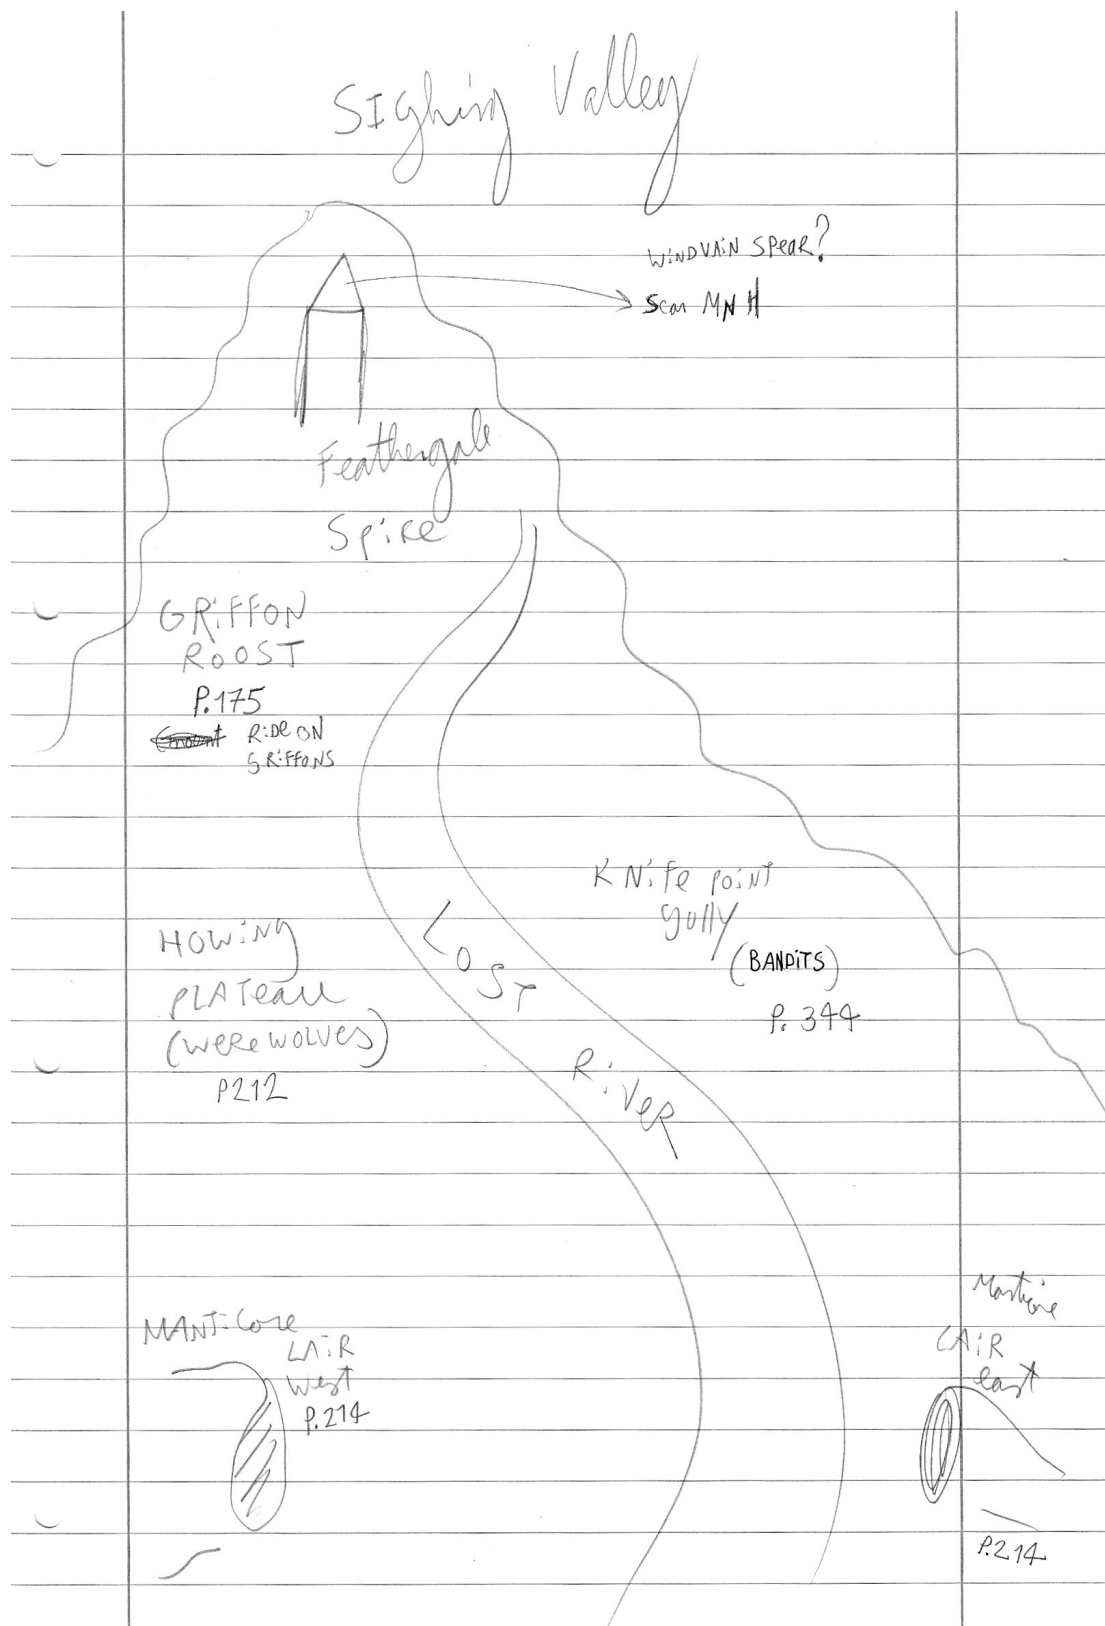 Sighing Valley
WiNDVAiN SPeaR?
Scan MNH
Feathergale
Spire
GRiFFON
ROOST
P.175
RiDe ON
GRiFFONS
KNife poiNT
gully
(BANDiTS)
P. 344
HOWiNg
PLATeau
(WereWOLVeS)
P212
LOST
RiVeR
MANTiCore
LAiR
West
P.214
Manticore
LAiR
east
P.214